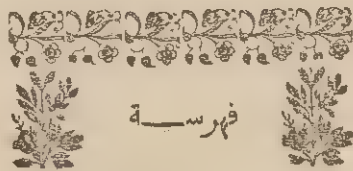 فهرســـة